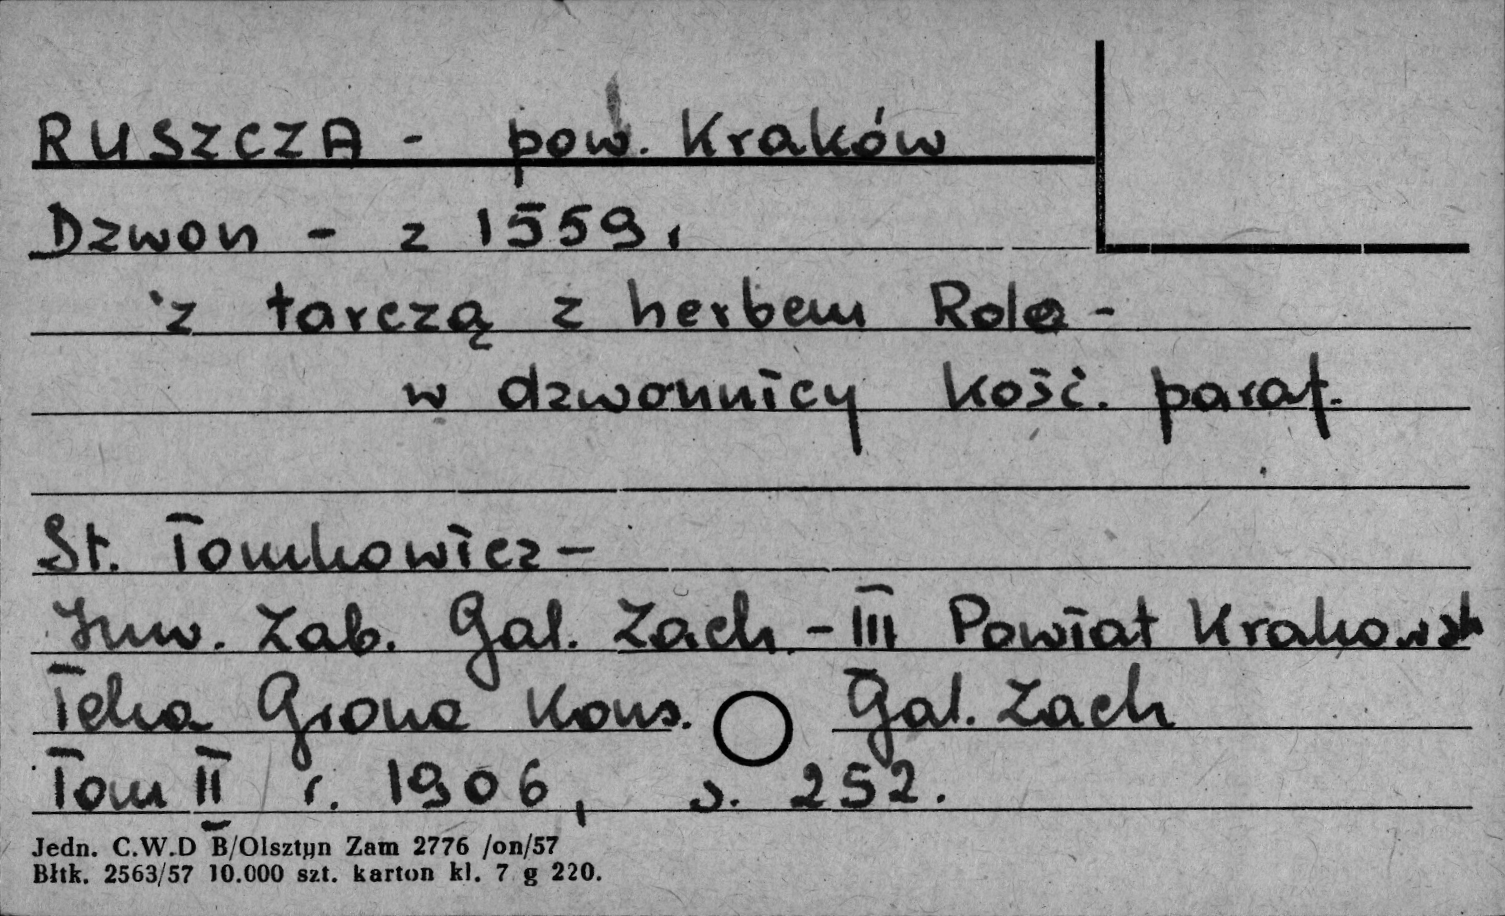 RUSZCZA - pow. Kraków
Dzwon - z 1559 r
z tarczą z herbem Rola -
w dzwonnicy kość. paraf.
St. Tomkowicz -
Inw. Zab. Gal. Zach. - III Powiat Krakowsk
Teka Grona Kons. Gal. Zach
Tom II r. 1906, s. 252.
Jedn. C.W.D B/Olsztyn Zam 2776 /on/57
Błtk. 2563/57 10.000 szt. karton kl. 7 g 220.